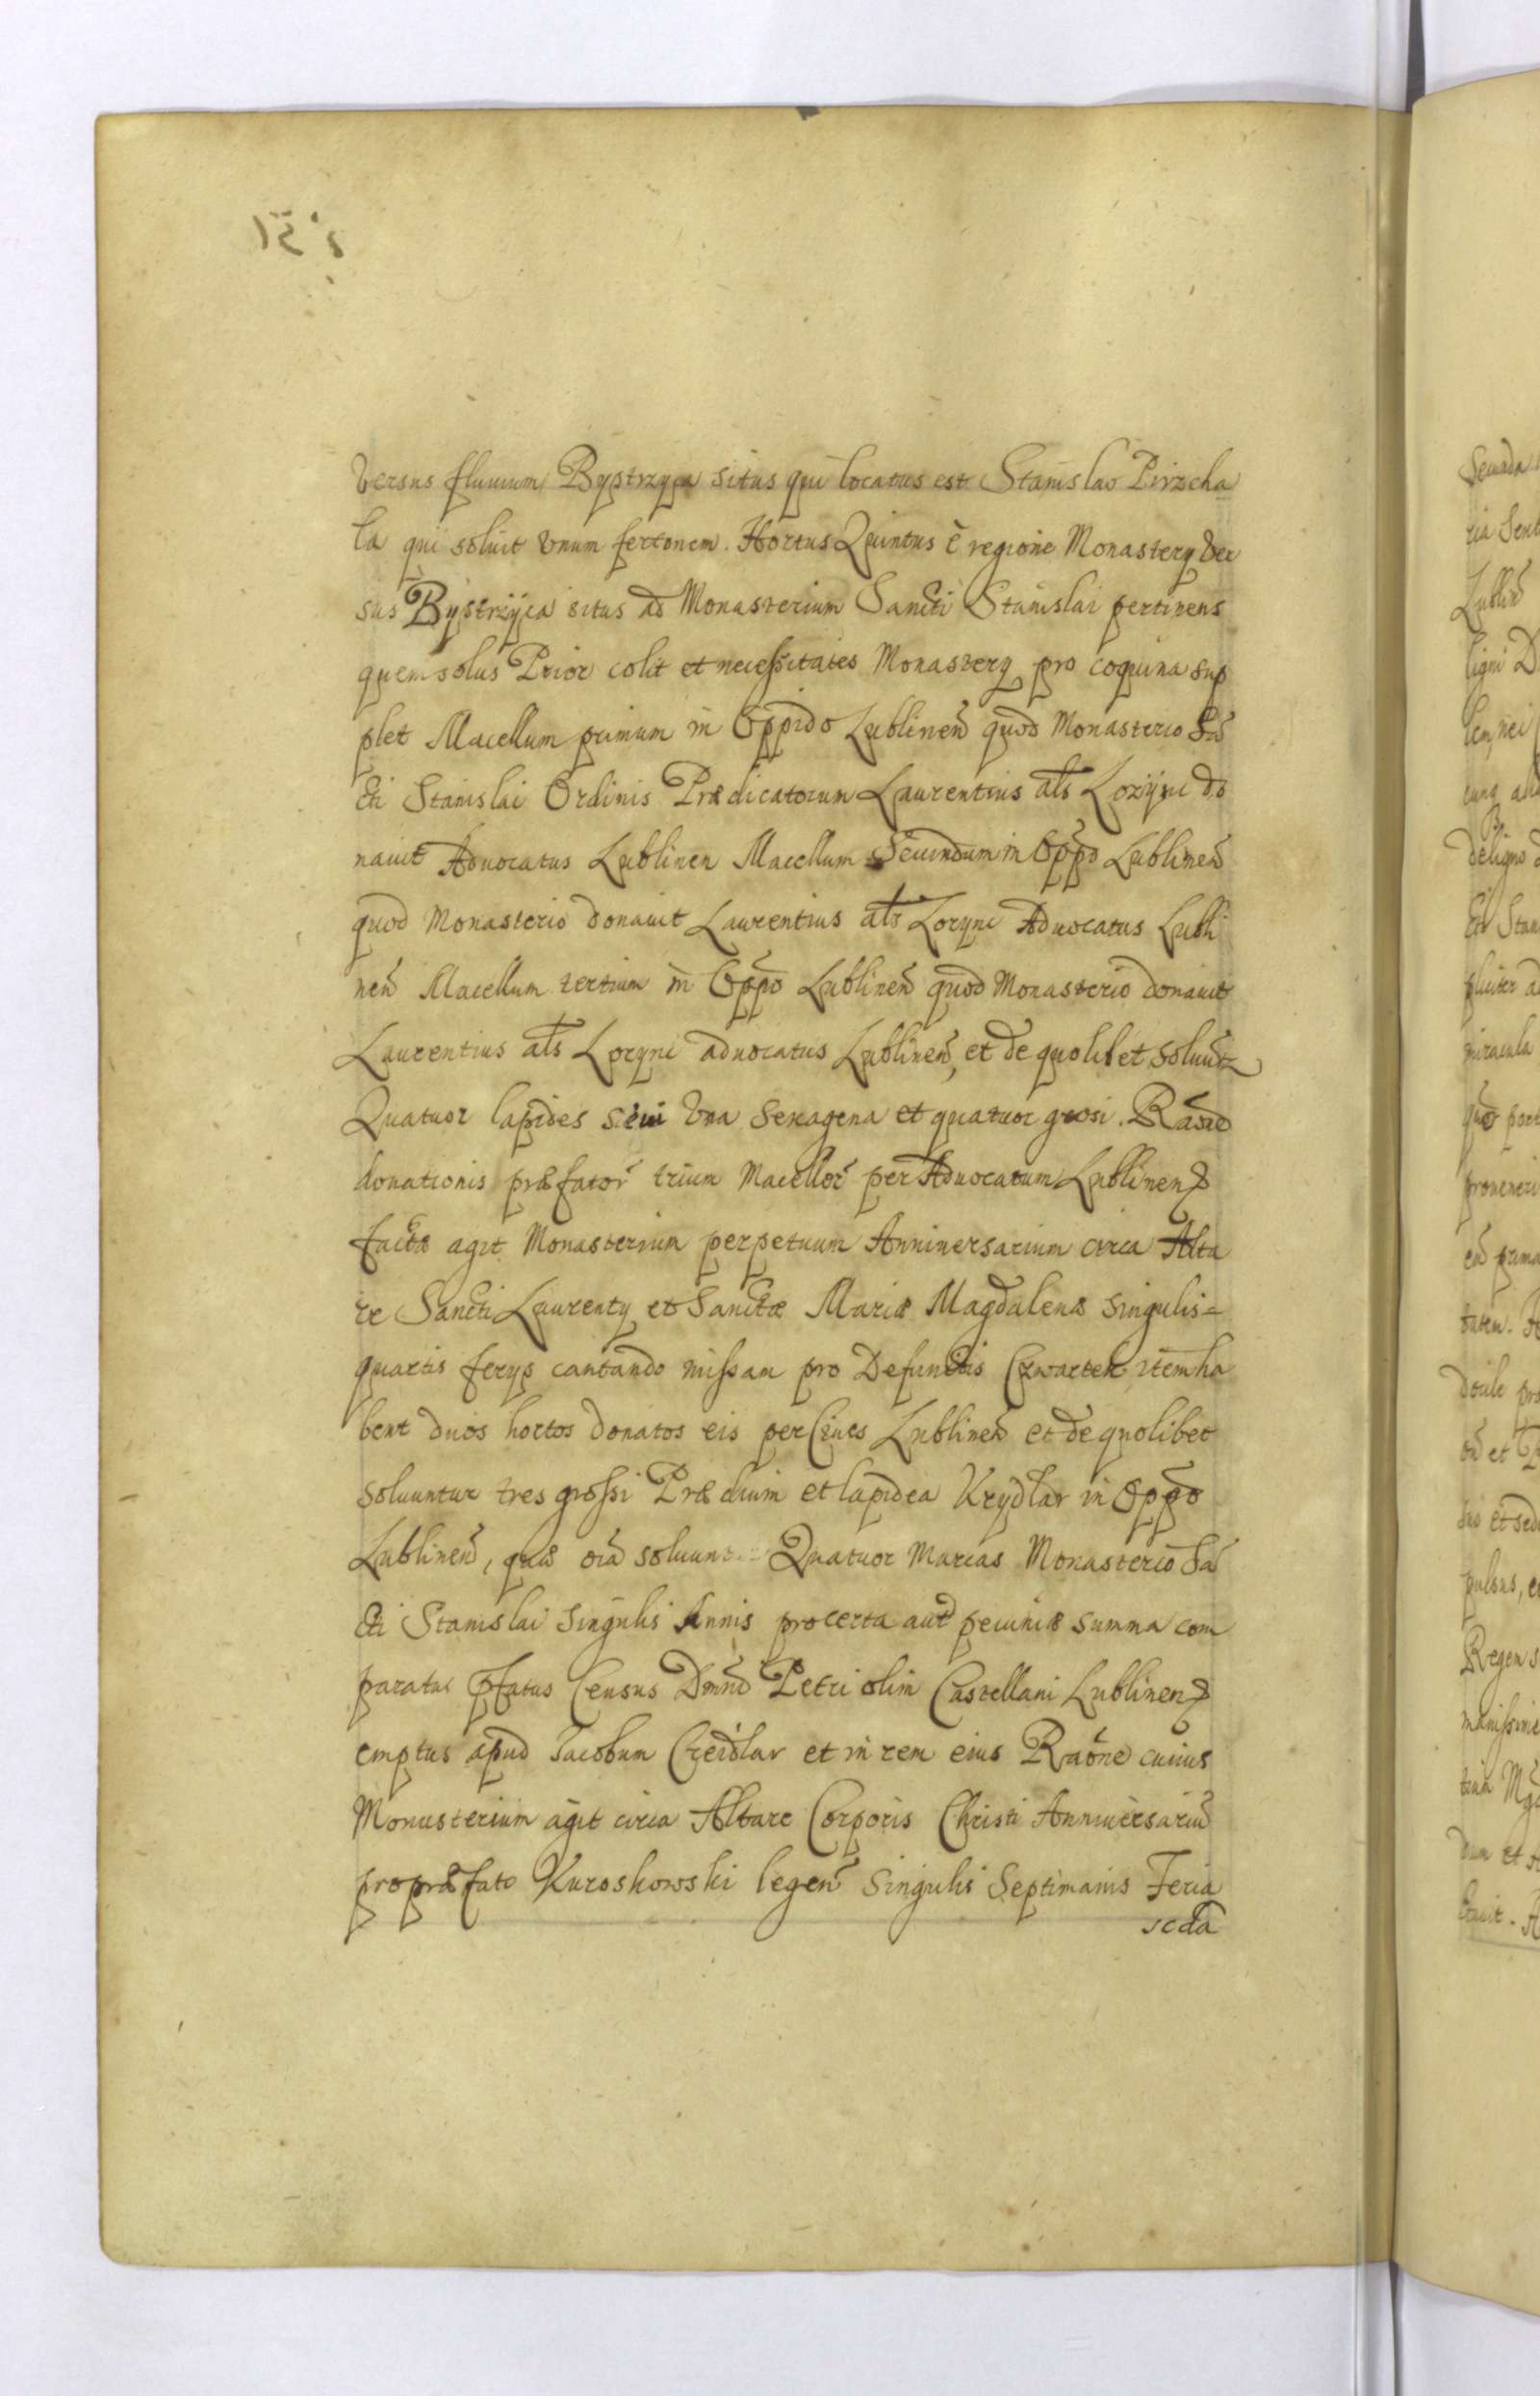 Versus fluuium Bystrzyca situs qui locatus est Stanislao Pirzcha
la qui soluit vnum fertonem. Hortus Quintus è regione Monastery ver
sus Bystrzyca situs ad Monasterium Sancti Stanislai pertinens
quem solus Prior colit et necessitates Monastery pro coquina sup
plet Macellum primum in Oppido Lublinen̄ quod Monasterio Sā
cti Stanislai Ordinis Prædicatorum Laurentius als Lozync do
nauit Aduocatus Lublinen Macellum Secundum in Oppō Lublinen̄
quod Monasterio donauit Laurentius als Lorync Aduocatus Lubli
nen̄ Macellum tertium in Oppō Lublinen̄ quod Monasterio donauit
Laurentius als Lorync aduocatus Lublinen̄, et de quolibet soluūt
Quatuor lapides seui vna sexagena et quatuor grosi. Raōe
donationis præfator̄ trium Macellor̄ per Aduocatum Lublinen
factæ agit Monasterium perpetuum Anniuersarium circa Alta
re Sancti Laurenty et Sanctæ Mariæ Magdalenæ singulis
quartis ferys cantando missam pro Defunctis Czwartek item ha
bent duos hortos donatos eis per Ciues Lublinen̄ et de quolibet
soluuntur tres grossi Prædium et lapidea Krydlar in Oppō
Lublinen̄, quæ oīa soluunt Quatuor Marcas Monasterio Sā
cti Stanislai singulis Annis pro certa aūt pecuniæ summa com
paratus pfatus Census Dmni Petri olim Castellani Lublinen
emptus apud Iacobum Creidlar et in rem eius Raōne cuius
Monasterium agit circa Altare Corporis Christi Anniuersariū
pro præfato Kuroskowski legen̄ singulis Septimanis Feria
scda